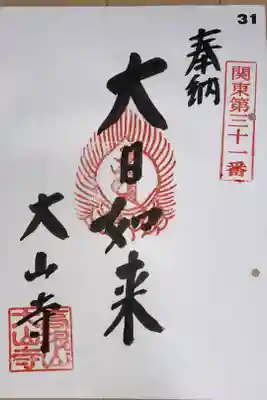 31
奉納
関東第三十一番
大日如来
大山寺
高蔵山
大山寺